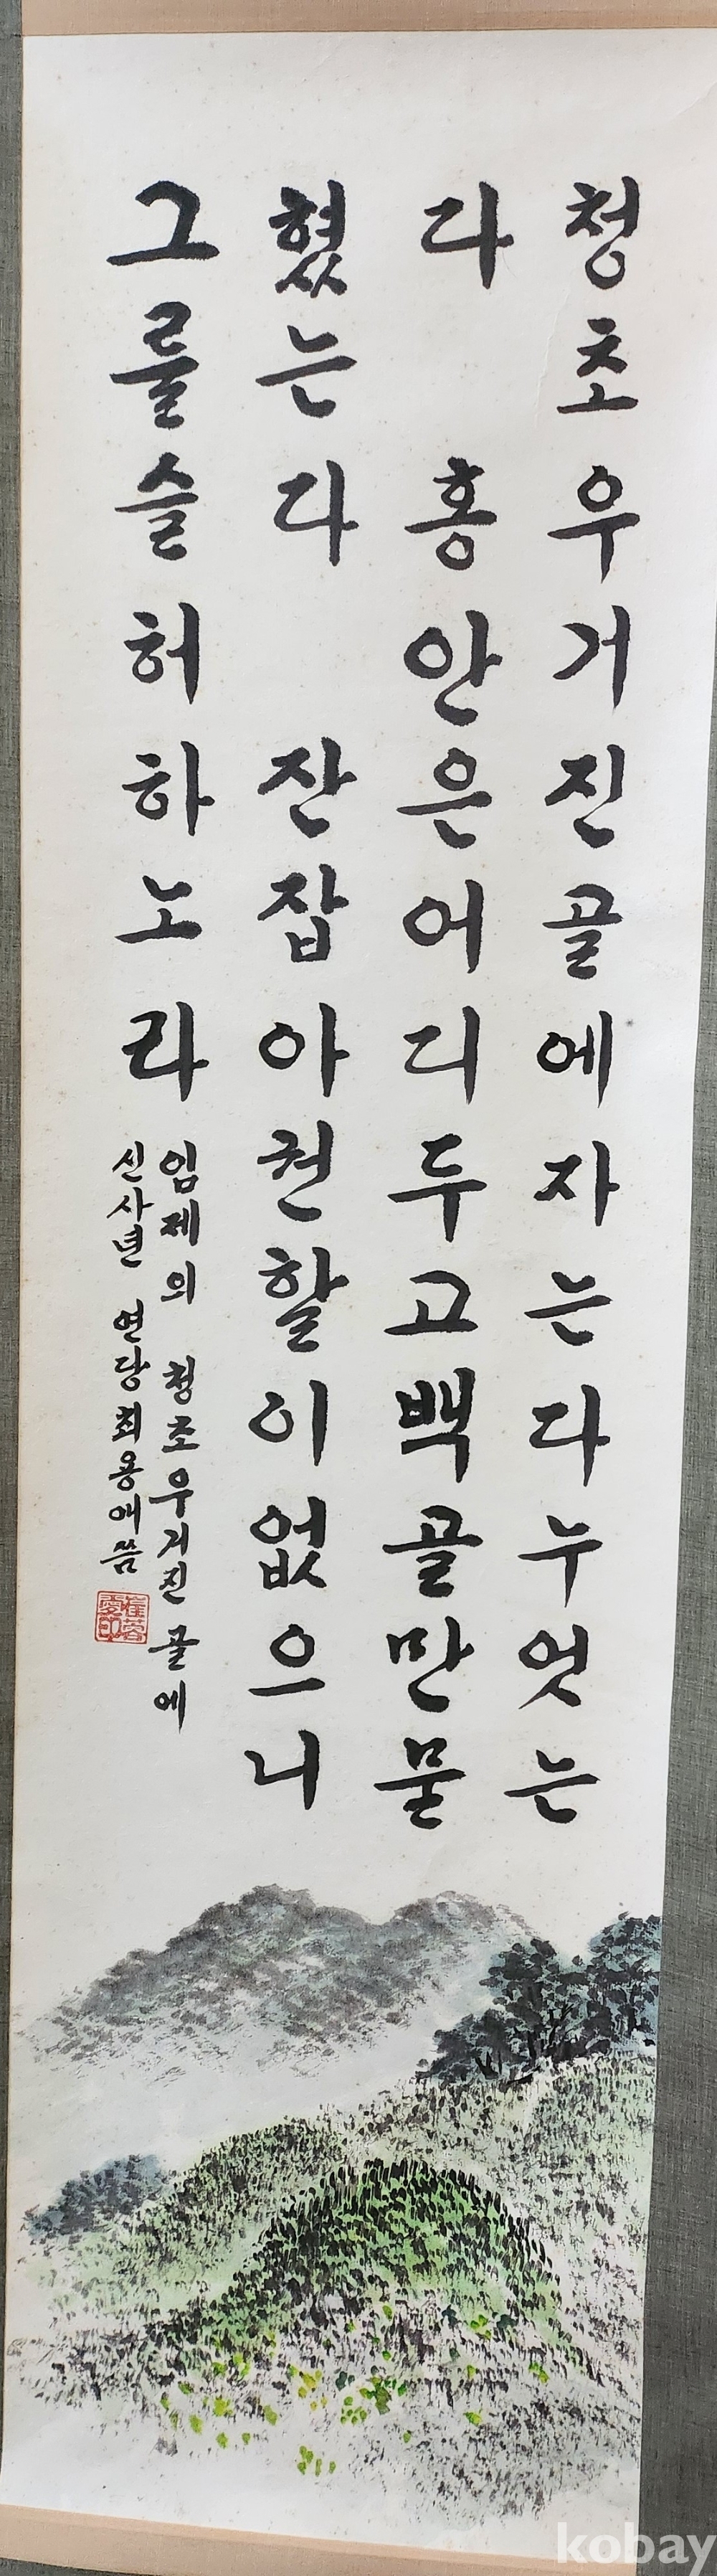 청초우거진골에자는다누엇는
다 홍안은어디두고백골만물
혔는다 잔잡아권할이없으니
그를슬허하노라
임제의 청초우거진골에
신사년 연당최용애씀
崔蓉
愛印
kobay